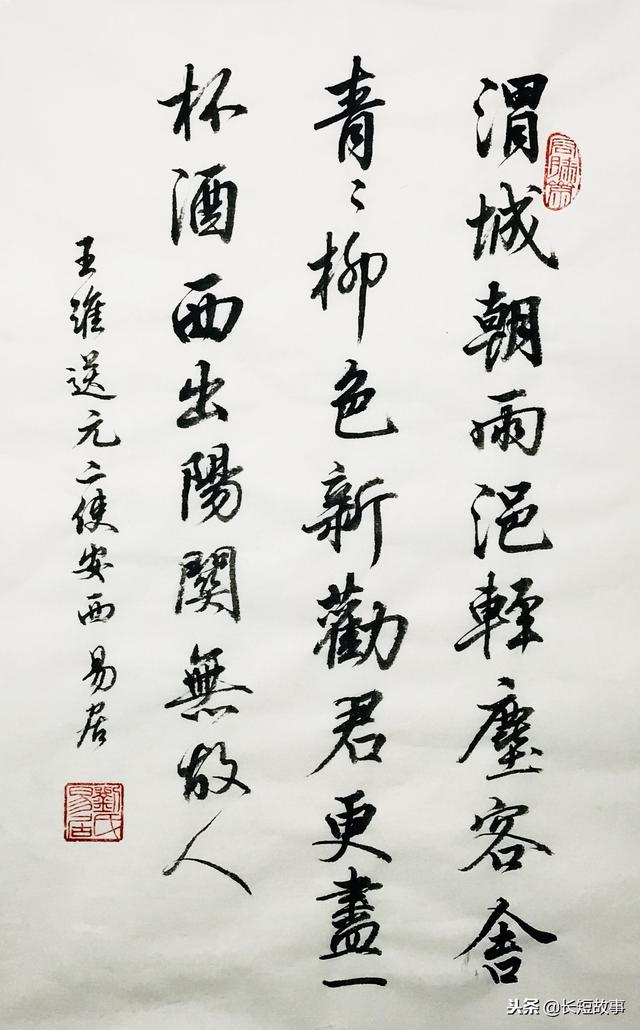 渭城朝雨浥輕塵客舍
青〻柳色新勸君更盡一
杯酒西出陽關無故人
王維送元二使安西 易居
劉氏易居
头条@长短故事